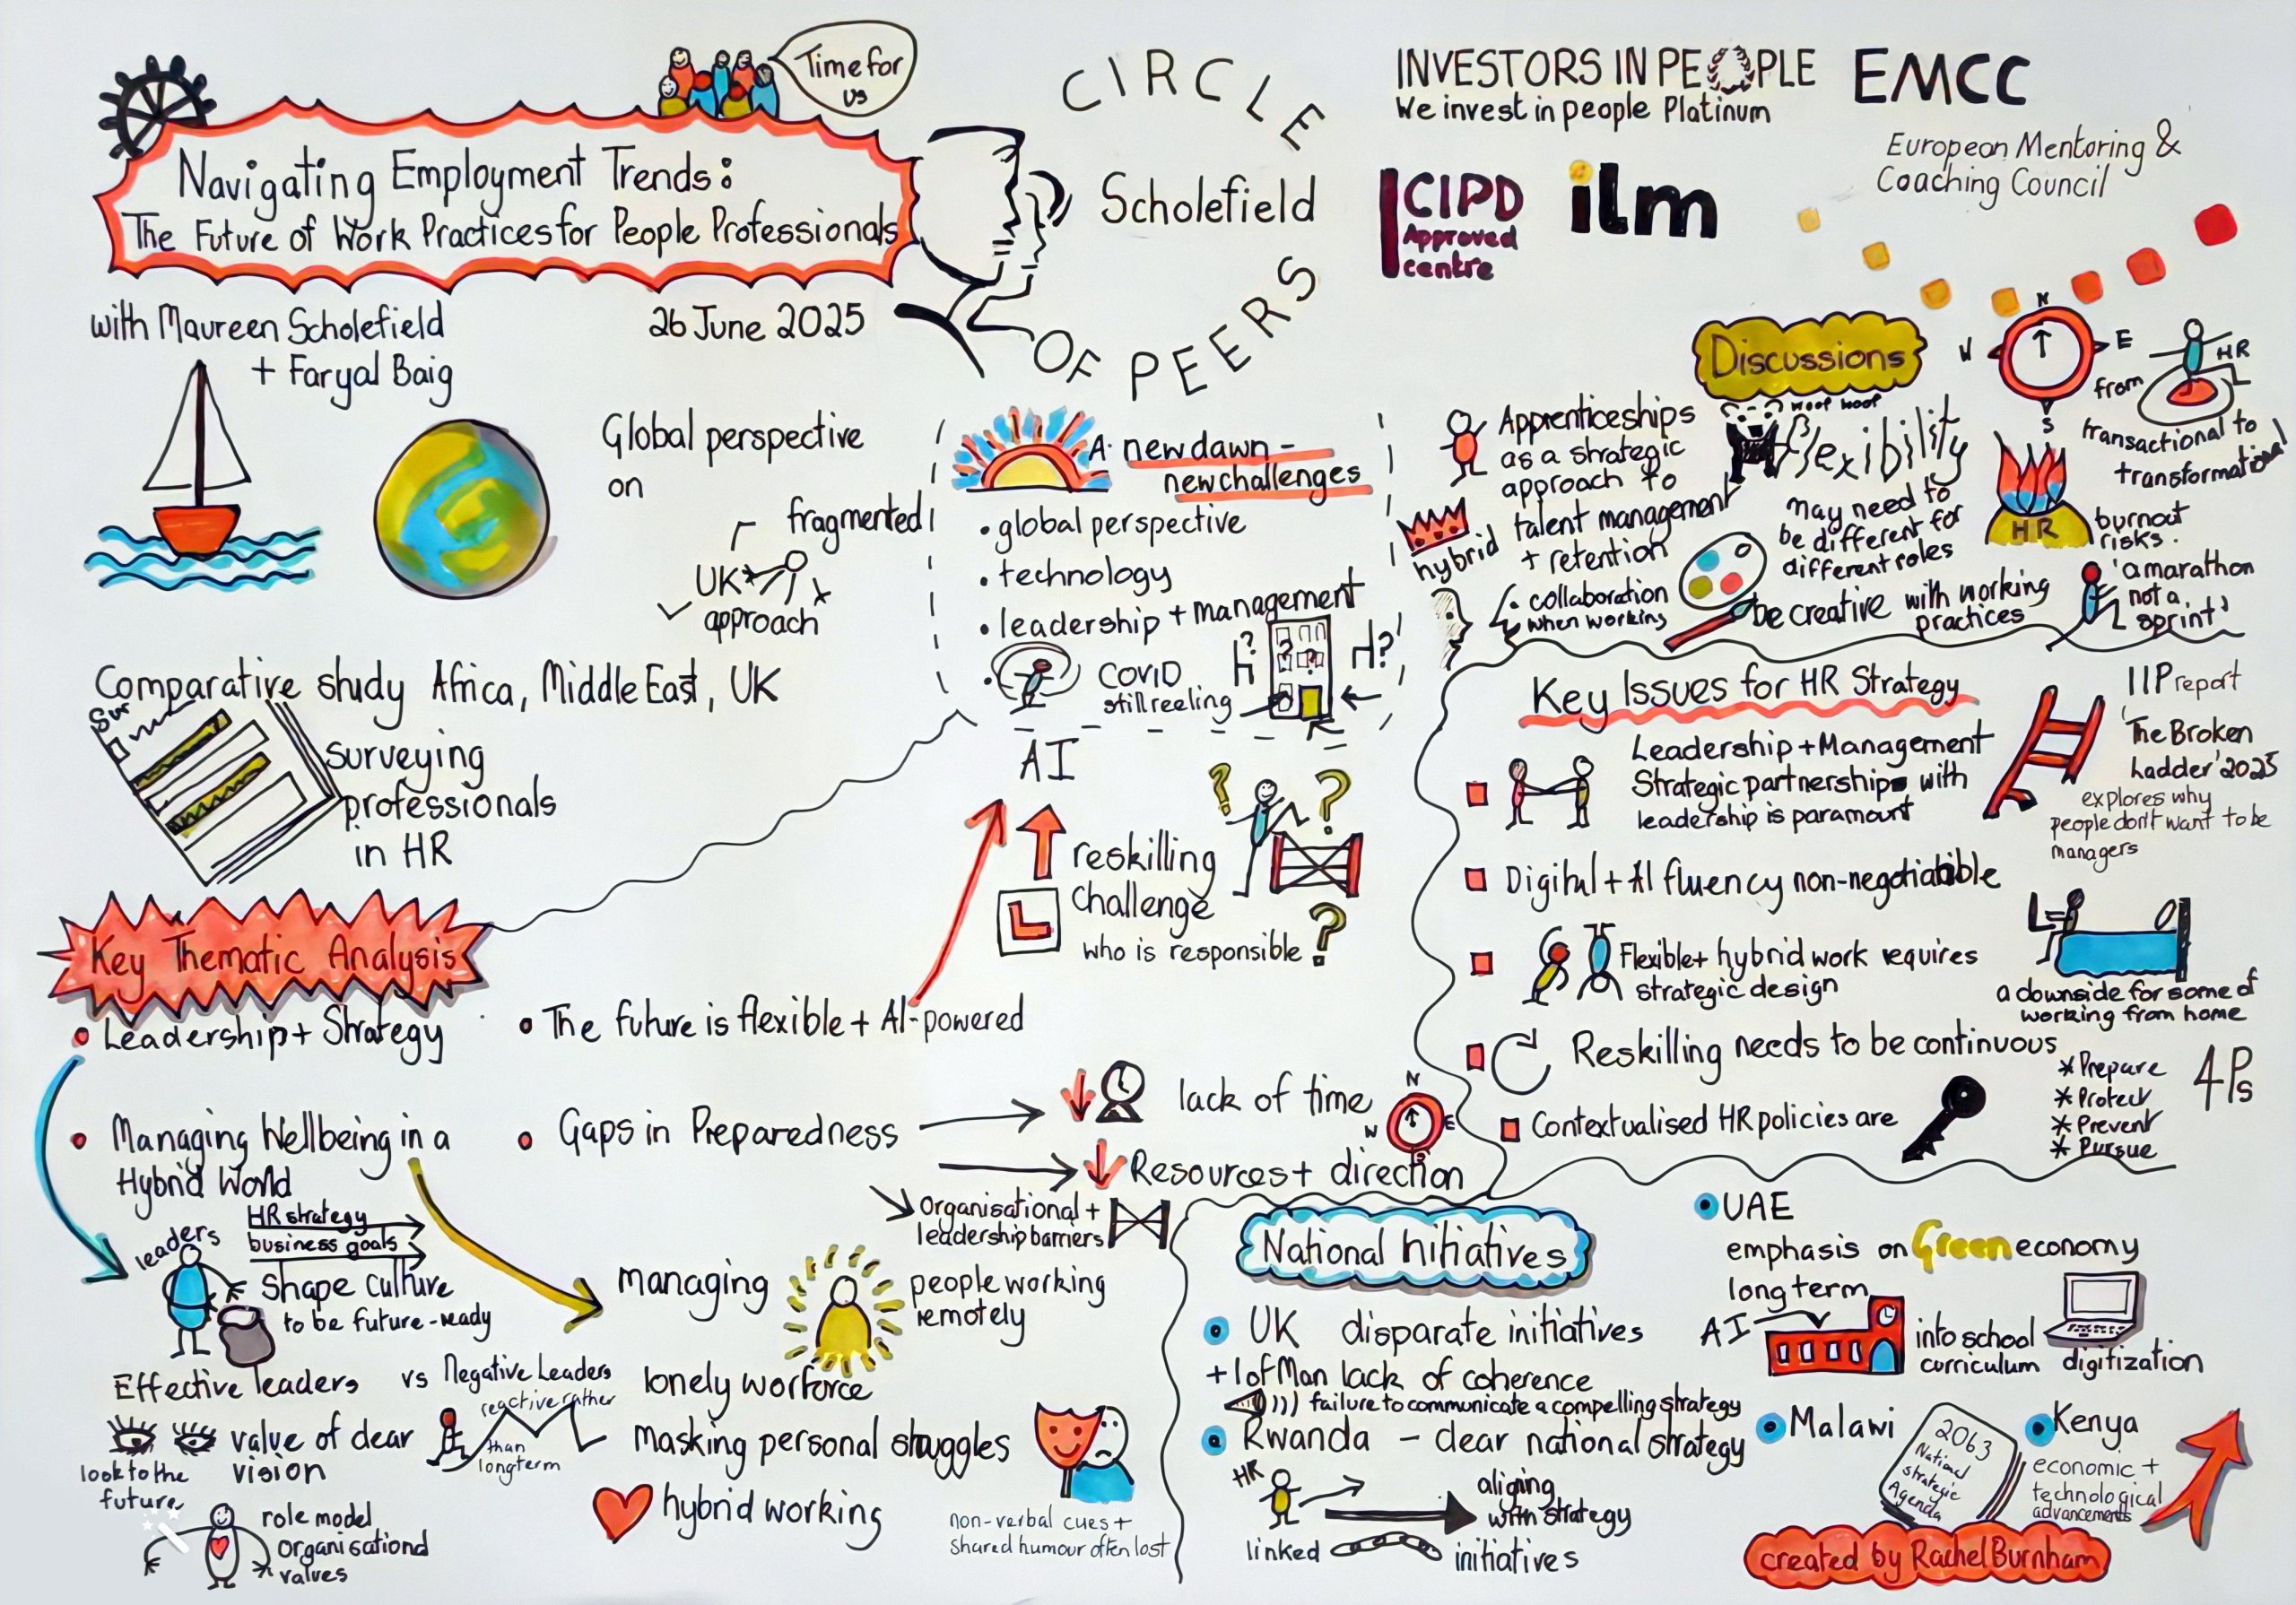 Time for
us
Navigating Employment Trends:
The Future of Work Practices for People Professionals
with Maureen Scholefield
+ Faryal Baig
26 June 2025
CIRCLE
Scholefield
OF PEERS
INVESTORS IN PEOPLE
We invest in people Platinum
EMCC
European Mentoring &
Coaching Council
CIPD
Approved
centre
ilm
Global perspective
on
fragmented
UK
approach
Comparative study Africa, Middle East, UK
Sur
surveying
professionals
in HR
A new dawn -
new challenges
• global perspective
• technology
• leadership + management
• COVID
still reeling
H?
H?
AI
reskilling
challenge
L
who is responsible ?
Discussions
Apprenticeships
as a strategic
approach to
talent management
+ retention
hybrid
• collaboration
when working
woof woof
Flexibility
may need to
be different for
different roles
be creative with working
practices
N
W
E
S
HR
from
transactional to
transformational
HR
burnout
risks.
'a marathon
not a
sprint'
Key Issues for HR Strategy
Leadership + Management
Strategic partnerships with
leadership is paramount
IIP report
'The Broken
Ladder' 2025
explores why
people don't want to be
managers
Digital + AI fluency non-negotiabible
Flexible + hybrid work requires
strategic design
a downside for some of
working from home
Reskilling needs to be continuous
Contextualised HR policies are
* Prepare
* Protect
* Prevent
* Pursue
4Ps
Key Thematic Analysis
• Leadership + Strategy
• Managing Wellbeing in a
Hybrid World
• The future is flexible + AI-powered
• Gaps in Preparedness
lack of time
N
W
E
S
Resources + direction
Organisational +
leadership barriers
leaders
HR strategy
business goals
shape culture
to be future-ready
Effective leaders vs Negative Leaders
reactive rather
than
longterm
value of clear
vision
look to the
future
role model
organisational
values
managing
people working
remotely
lonely worforce
masking personal struggles
hybrid working
non-verbal cues +
shared humour often lost
National Initiatives
UK disparate initiatives
+ I of Man lack of coherence
failure to communicate a compelling strategy
Rwanda - clear national strategy
HR
linked
aligning
with strategy
initiatives
UAE
emphasis on Green economy
long term
AI
into school
curriculum
digitization
Malawi
2063
National
strategic
Agenda
Kenya
economic +
technological
advancements
created by Rachel Burnham